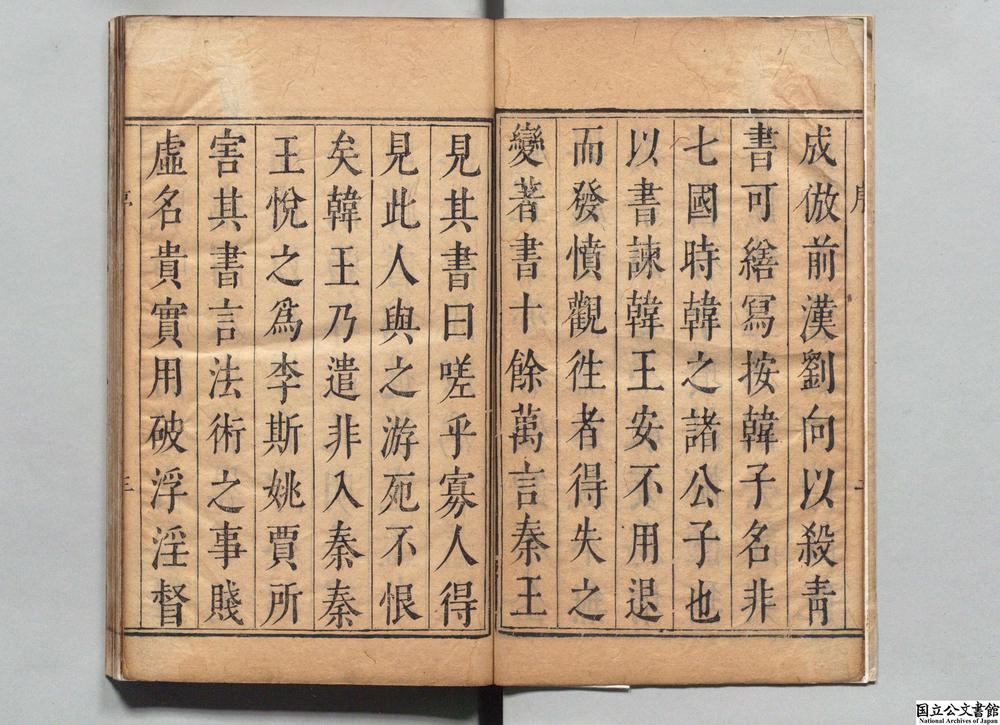 成倣前漢劉向以殺青
書可繕寫按韓子名非
七國時韓之諸公子也
以書諫韓王安不用退
而發憤觀徃者得失之
變著書十餘萬言秦王
見其書曰嗟乎寡人得
見此人與之游死不恨
矣韓王乃遣非入秦秦
王悅之爲李斯姚賈所
害其書言法術之事賤
虛名貴實用破浮淫督
国立公文書館
National Archives of Japan